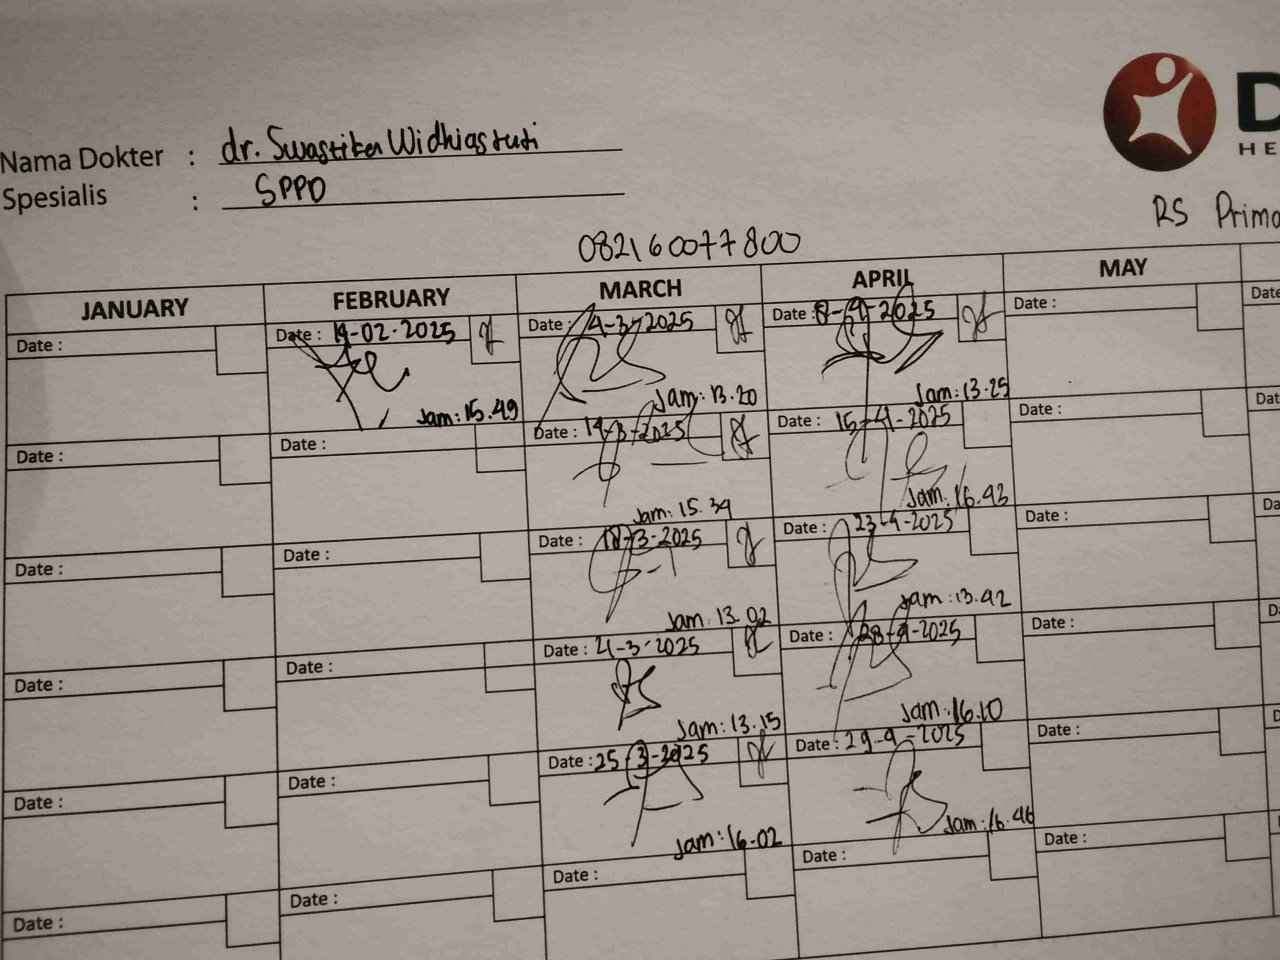 Nama Dokter : dr. Swastika Widhiastuti
Spesialis : SPPD
D
HE
RS Prima
082160077800
JANUARY FEBRUARY MARCH APRIL MAY
Date : Date : 14-02-2025 Date : 4-3-2025 Date : 8-4-2025 Date : Date
Jam: 15.49 Jam: 13.20 Jam: 13.25
Date : Date : Date : 14-3-2025 Date : 15-4-2025 Date : Dat
Jam: 15.39 Jam: 16.43
Date : Date : Date : 18-3-2025 Date : 23-4-2025 Date : Da
Jam: 13.02 Jam: 13.42
Date : Date : Date : 21-3-2025 Date : 28-4-2025 Date : D
Jam: 13.15 Jam: 16.10
Date : Date : Date : 25-3-2025 Date : 29-4-2025 Date : D
Jam: 16.02 Jam: 16.46
Date : Date : Date : Date : Date :